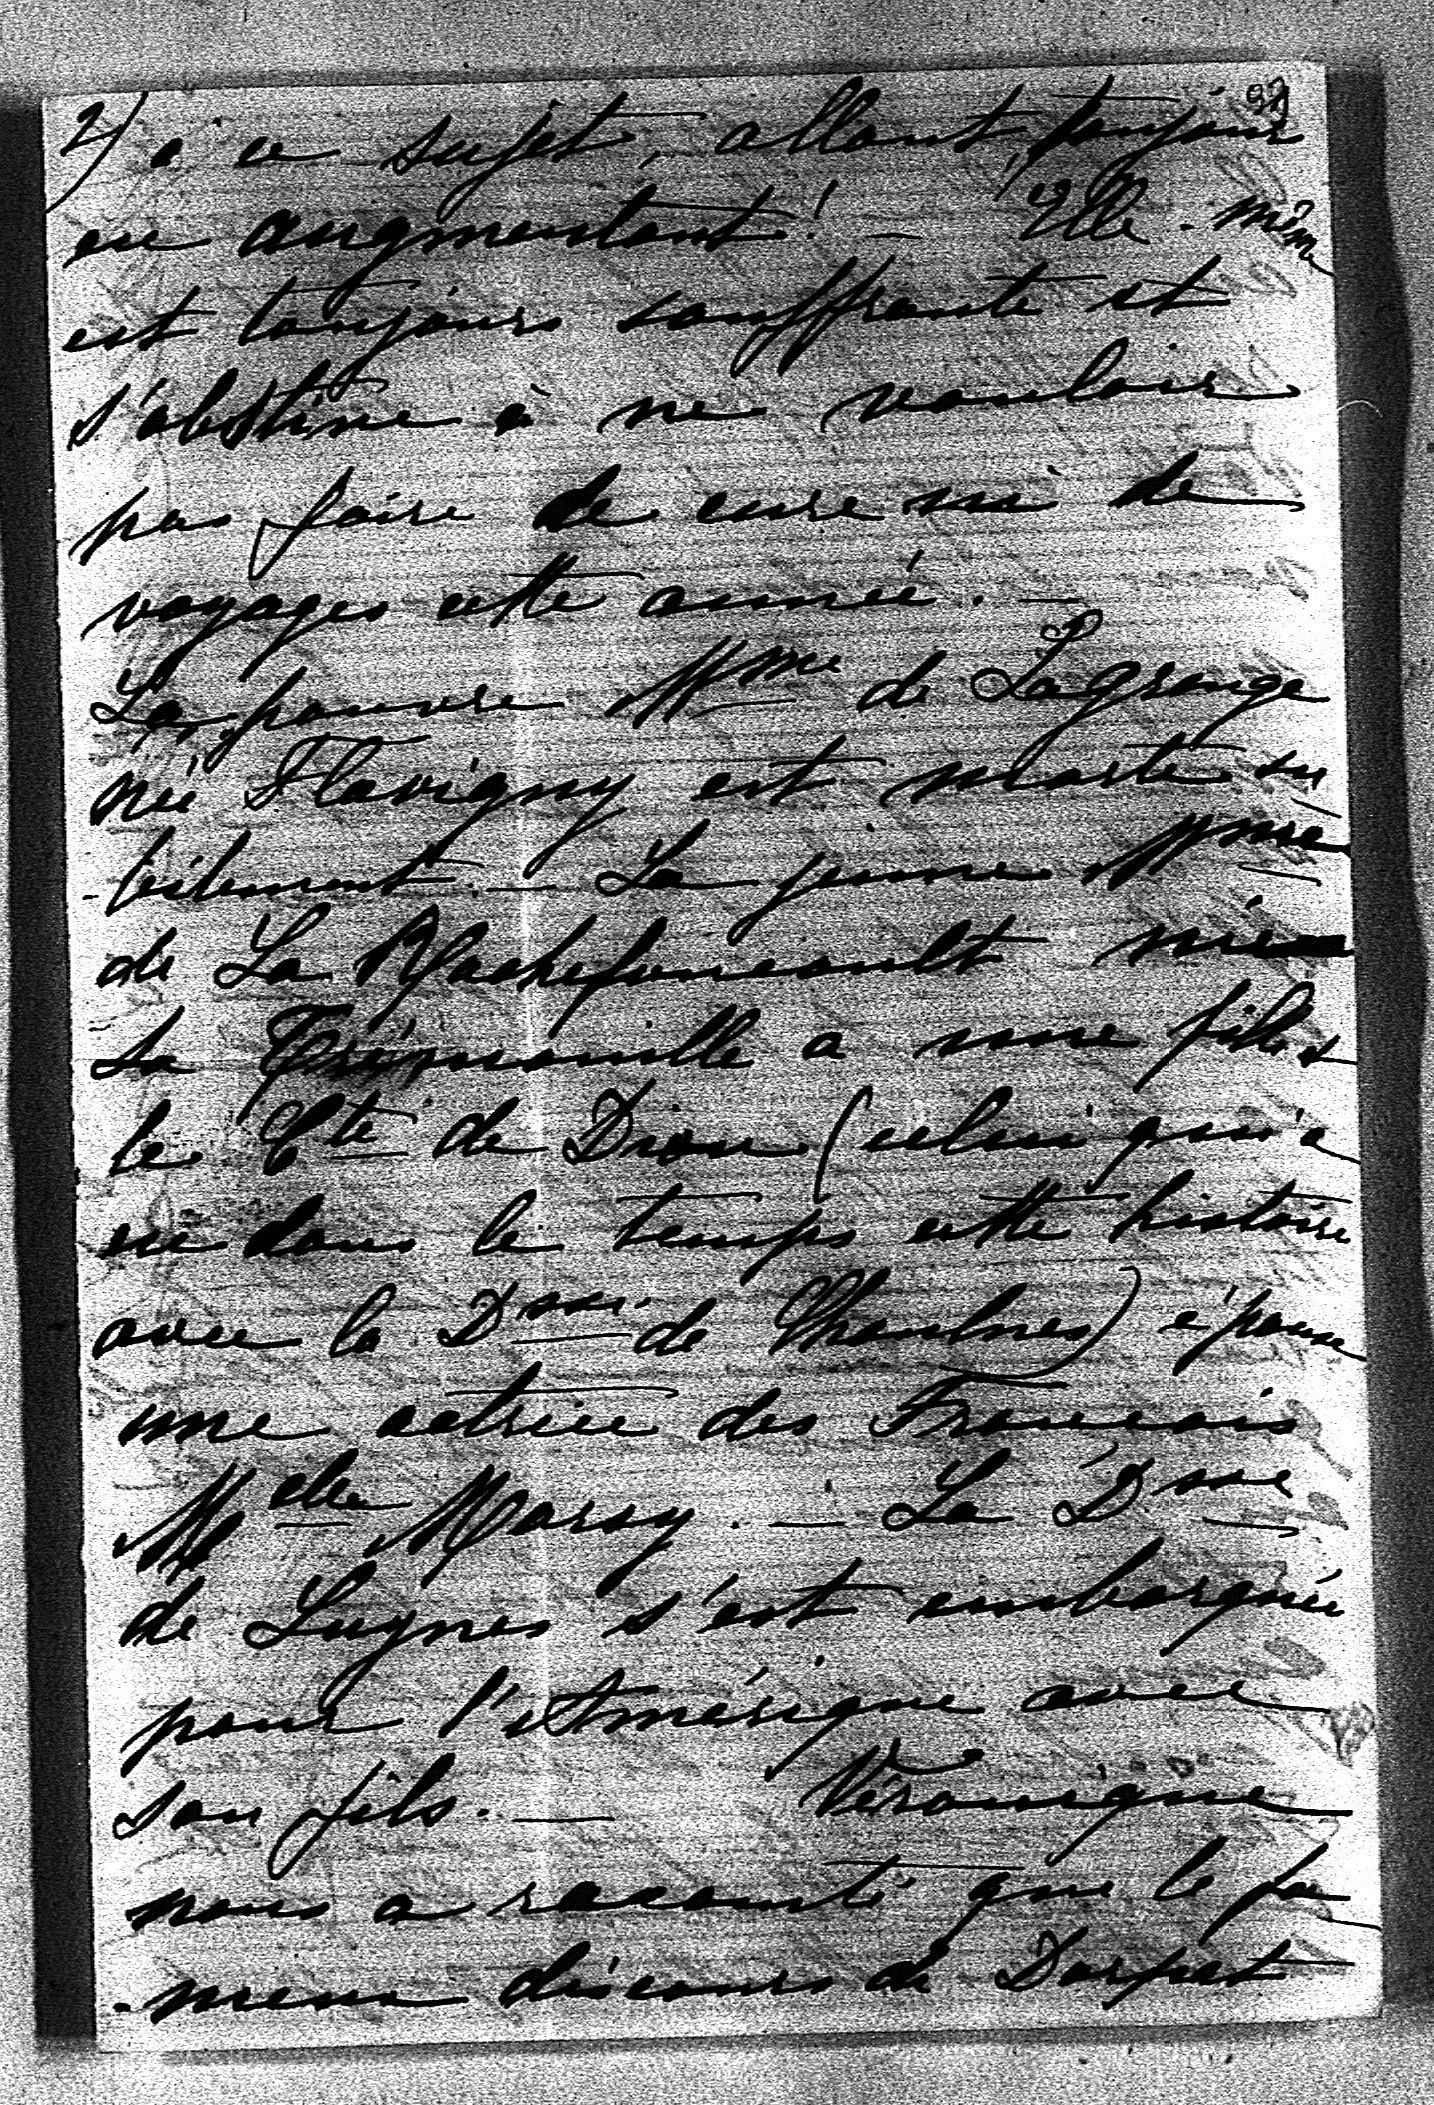 2) 92
à ce sujet, allant toujours
en augmentant! — Elle-même
est toujours souffrante et
s'obstine à ne vouloir
pas faire de cure ni de
voyages cette année. —
La pauvre Mme de Lagrange
née Flavigny est morte su
-bitement. — La jeune Mme
de La Rochefoucault née
La Trémouille a une fille &
le Cte de Dion (celui qui a
eu dans le temps cette histoire
avec la Dsse de Chaulnes) épouse
une actrice des Francais
Melle Marsy. — La Dsse
de Luynes s'est embarquée
pour l'Amérique avec
son fils. — Véronique
nous a raconté que le fa
-meux discours de Dorpat